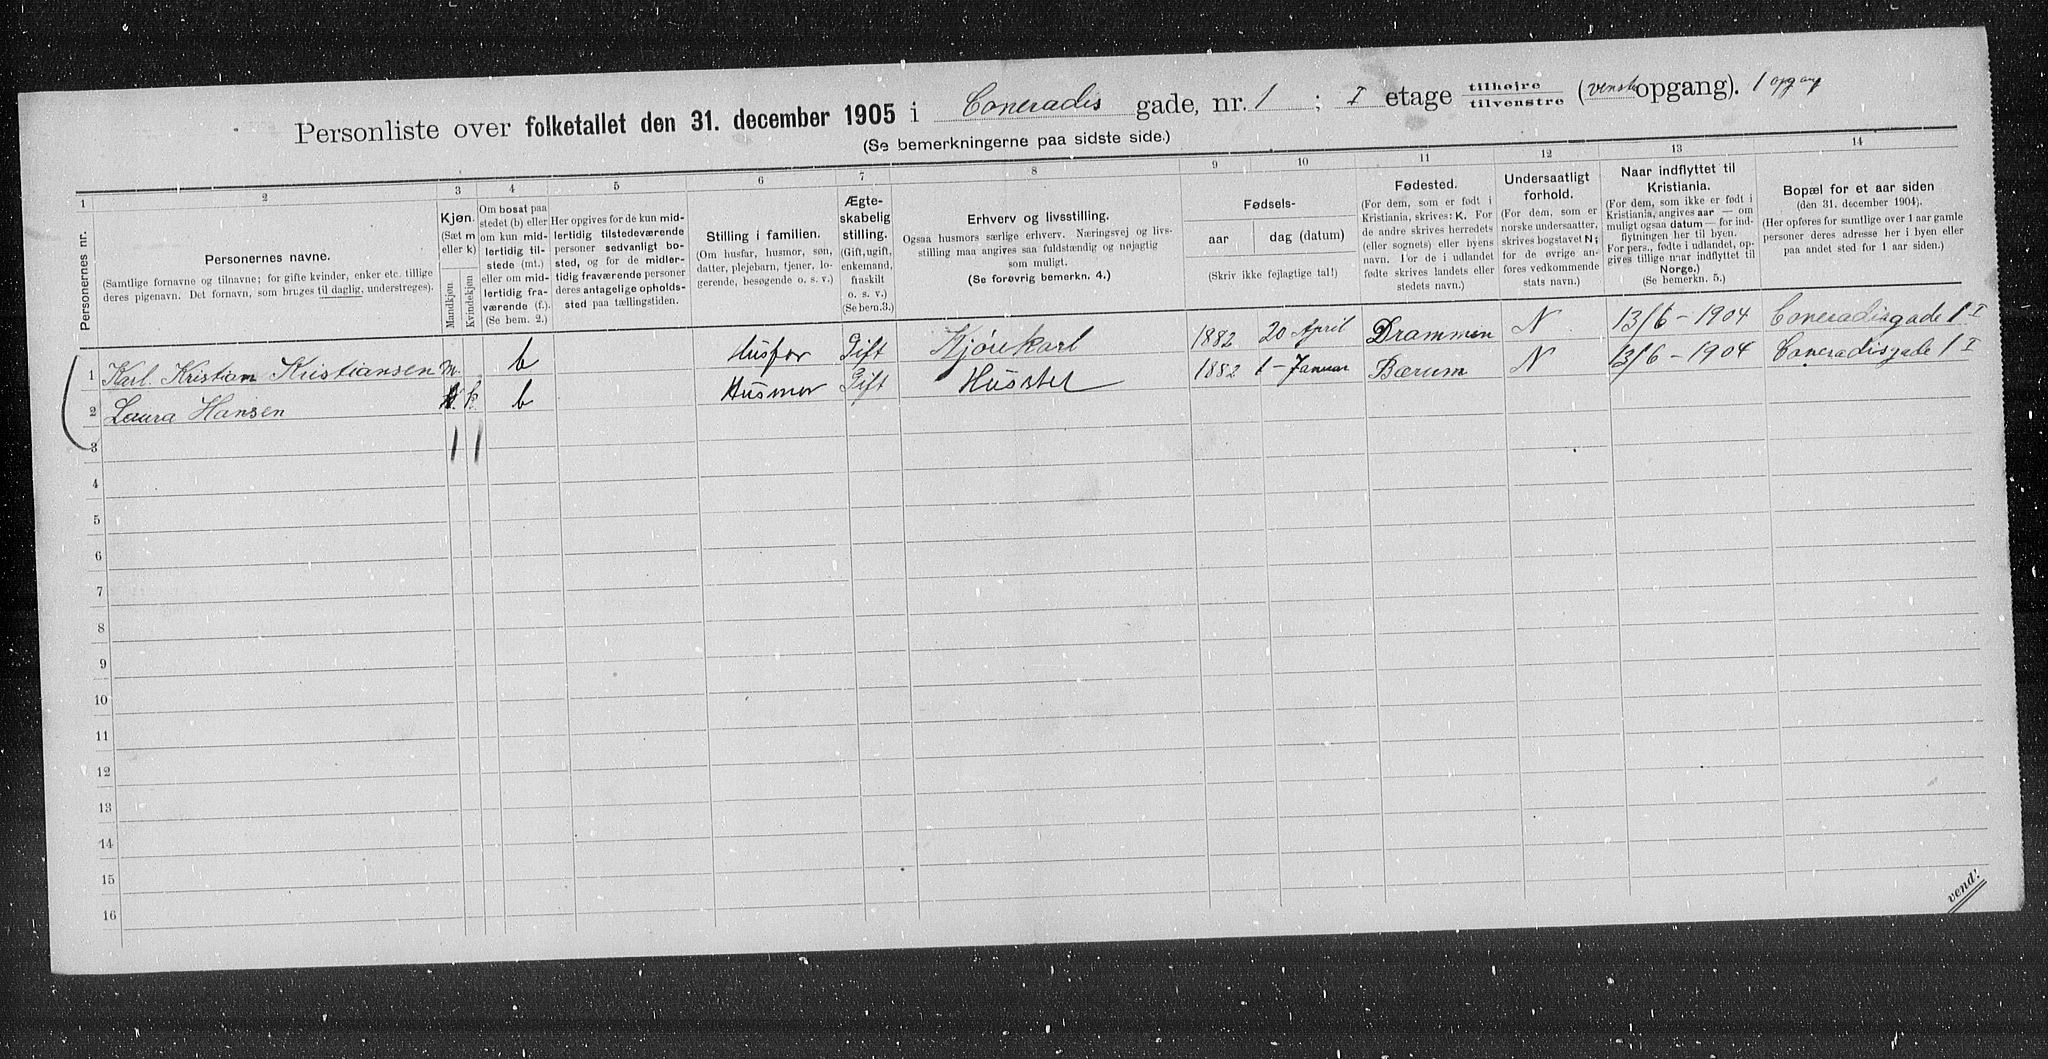 Personliste over folketallet den 31. december 1905 i Coneradis gade, nr. 1 ; I etage tilhøjre tilvenstre (venst opgang). 1 opgang
(Se bemerkningerne paa sidste side.)
1 2 3 4 5 6 7 8 9 10 11 12 13 14
Personernes nr.
Personernes navne.
(Samtlige fornavne og tilnavne; for gifte kvinder, enker etc. tillige
deres pigenavn. Det fornavn, som bruges til daglig, understreges).
Kjøn.
(Sæt m
eller k)
Mandkjøn
Kvindekjøn
Om bosat paa
stedet (b) eller
om kun mid-
lertidig til-
stede (mt.)
eller om mid-
lertidig fra-
værende (f.).
(Se bem. 2.)
Her opgives for de kun mid-
lertidig tilstedeværende
personer sedvanligt bo-
sted, og for de midler-
tidig fraværende personer
deres antagelige opholds-
sted paa tællingstiden.
Stilling i familien.
(Om husfar, husmor, søn,
datter, plejebarn, tjener, lo-
gerende, besøgende o. s. v.)
Ægte-
skabelig
stilling.
(Gift, ugift,
enkemand,
fraskilt
o. s. v.)
(Se bem.3.)
Erhverv og livsstilling.
Ogsaa husmors særlige erhverv. Næringsvej og livs-
stilling maa angives saa fuldstændig og nøjagtig
som muligt.
(Se forøvrig bemerkn. 4.)
Fødsels-
aar
dag (datum)
(Skriv ikke fejlagtige tal!)
Fødested.
(For dem, som er født i
Kristiania, skrives: K. For
de andre skrives herredets
(eller sognets) eller byens
navn. For de i udlandet
fødte skrives landets eller
stedets navn.)
Undersaatligt
forhold.
(For dem, som er
norske undersaatter,
skrives bogstavet N;
for de øvrige an-
føres vedkommende
stats navn).
Naar indflyttet til
Kristiania.
(For dem, som ikke er født i
Kristiania, angives aar — om
muligt ogsaa datum — for ind-
flytningen her til byen.
For pers., fødte i udlandet, op-
gives tillige naar indflyttet til
Norge.)
(Se bemerkn. 5.)
Bopæl for et aar siden
(den 31. december 1904).
(Her opføres for samtlige over 1 aar gamle
personer deres adresse her i byen eller
paa andet sted for 1 aar siden.)
1 Karl Kristian Kristiansen m. b Husfar Gift Kjørekarl 1882 20 April Drammen N. 13/6 - 1904 Coneradisgade 1 I
2 Laura Hansen k. b Husmor Gift Husstel 1882 1 - Januar Bærum N 13/6 - 1904 Coneradisgade 1 I
3 1 1
4
5
6
7
8
9
10
11
12
13
14
15
16
vend!